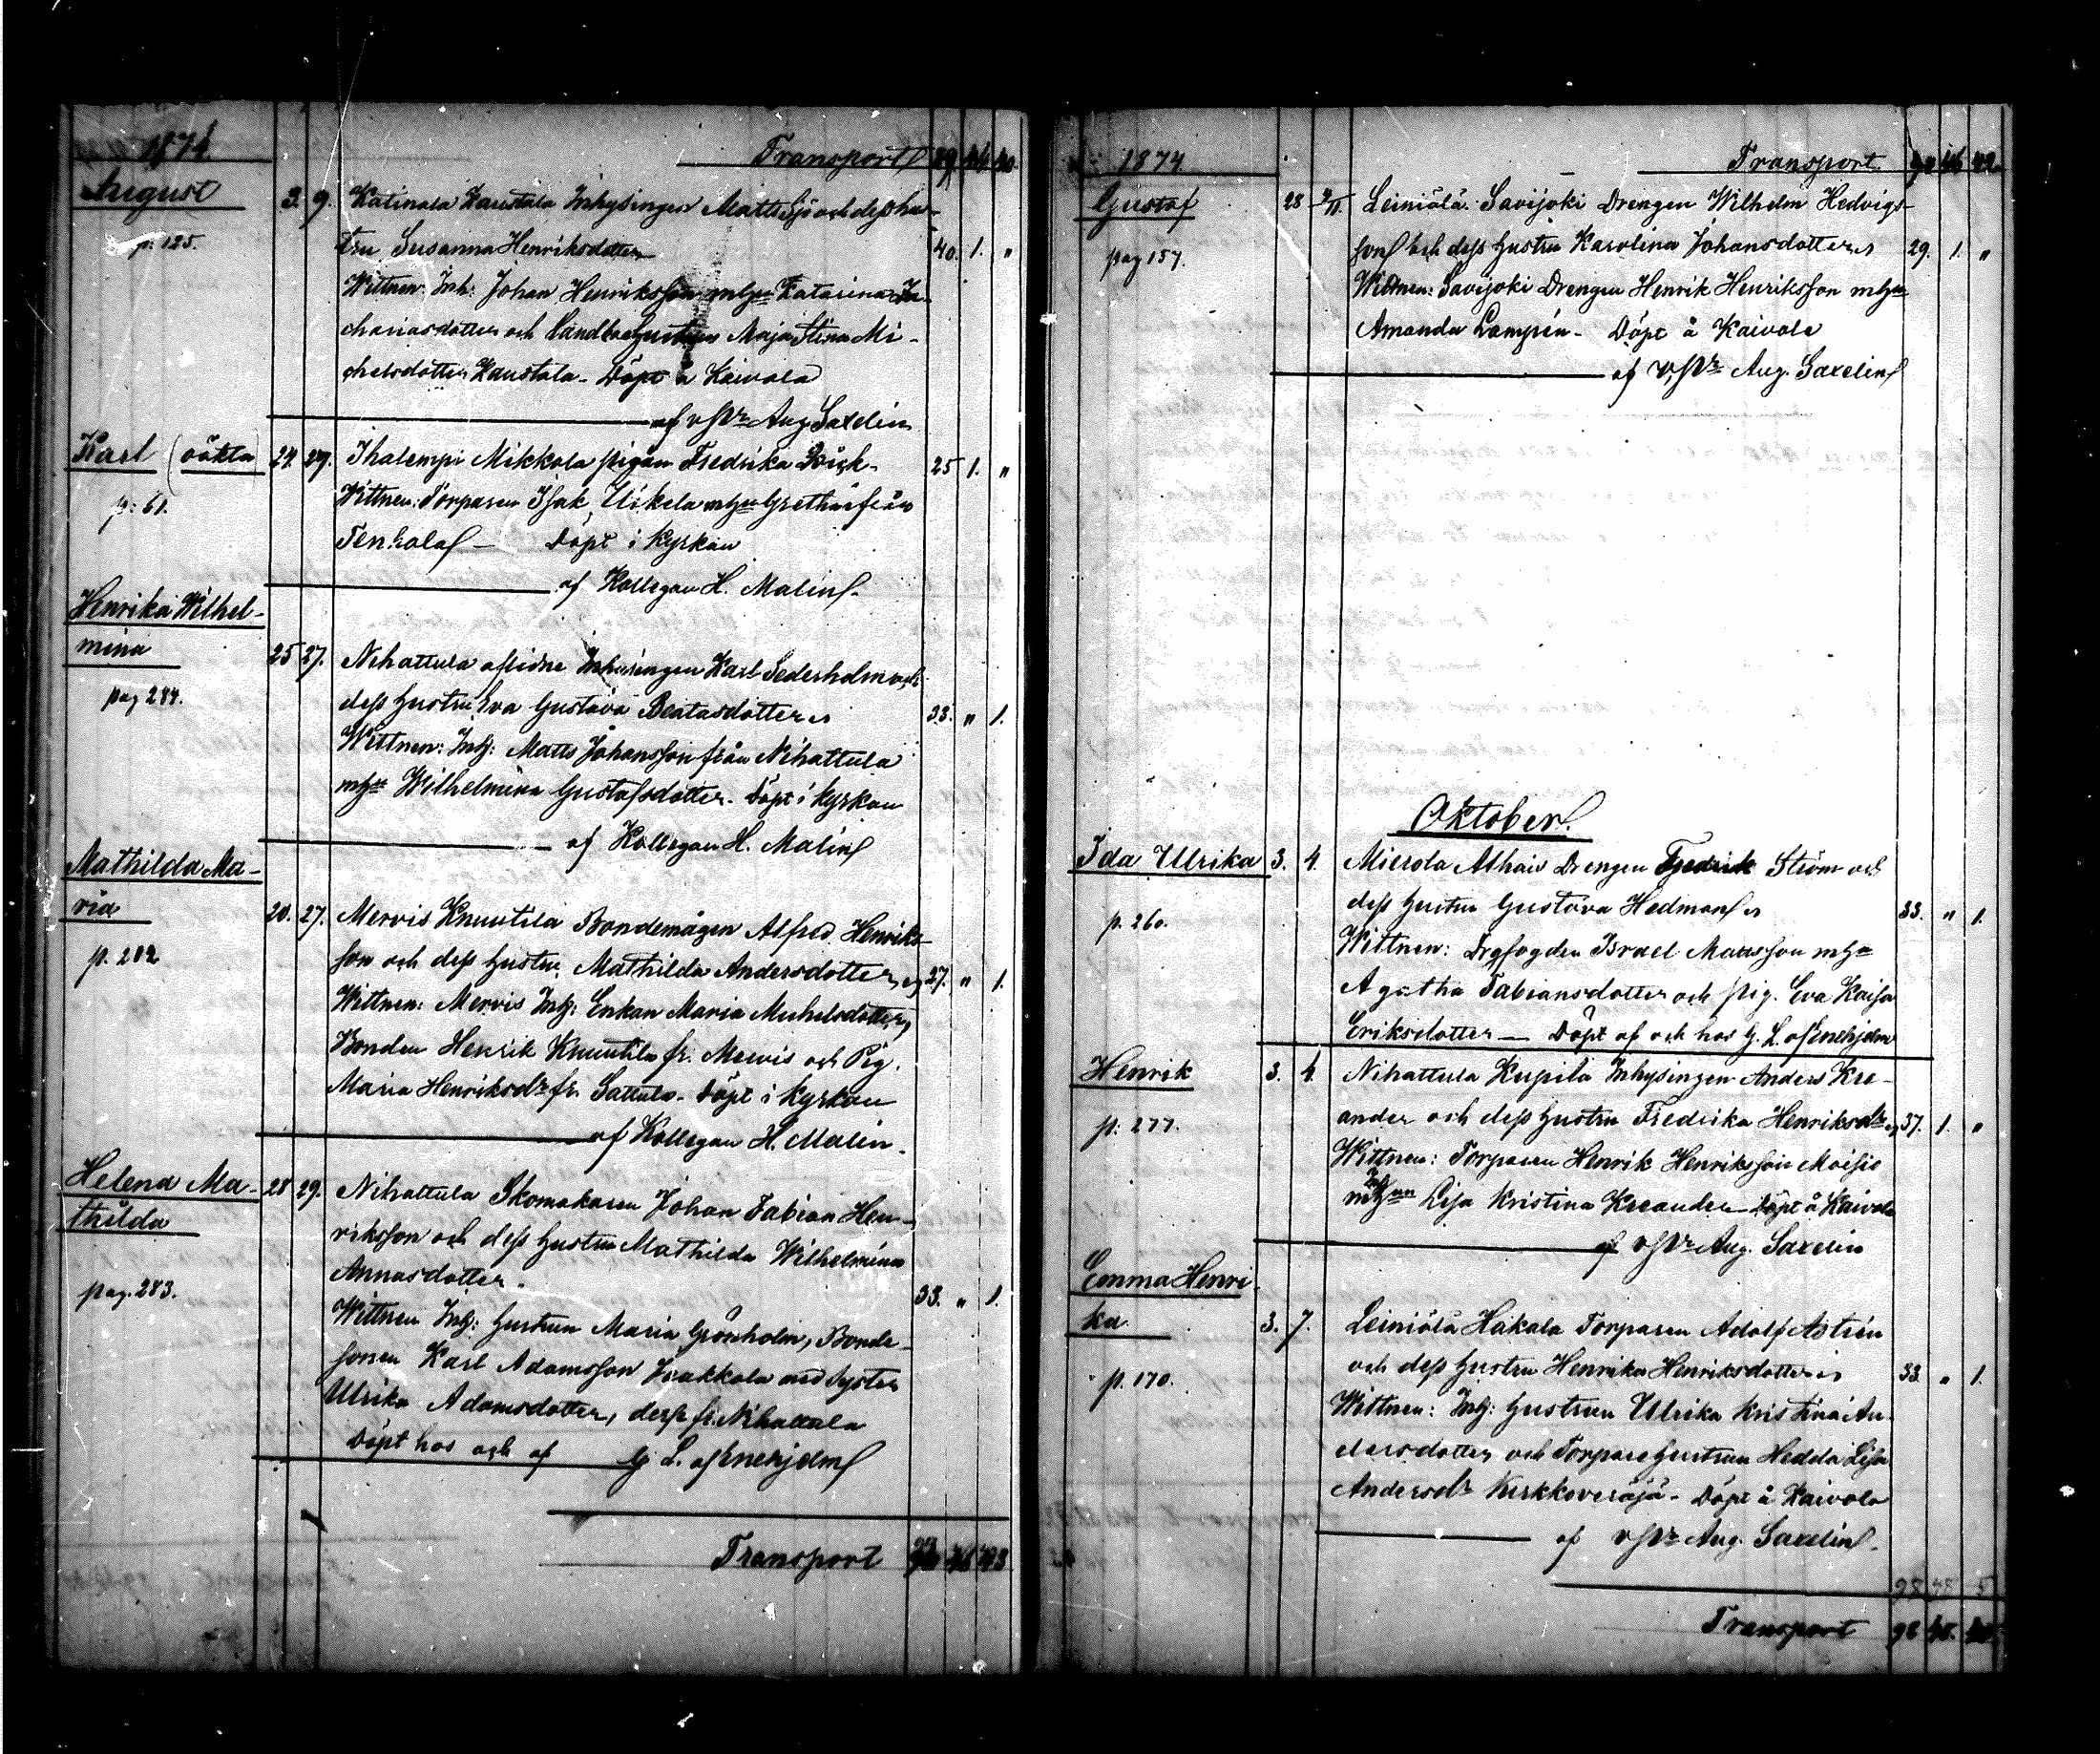 1874.
Transport 89 44
August
3. 9. Katinala Kaustala Inhysingen Matts Sjö och dess hu-
p. 125.
stru Susanna Henriksdotter 40. 1. "
Wittnen: Inh: Johan Henriksson mhgn Katarina
chariasdotter och Landbohustrun Maja Stina Mi-
chelsdotter Kaustala. Döpt å Kaivola
af vPr Aug Saxelin
Karl (oäkta 24. 29. Ihalempi Mikkola pigan Fredrika Björk. 25 1. "
p. 61.
Wittnen: Torparen Isak Uikela mhgn Greta från
Tenhola — Döpt i Kyrkan
af Kollegan H. Malin.
Henrika Wilhel-
mina
25 27. Nihattula afledne Inhysingen Karl Sederholm och
pag 284.
dess hustru Eva Gustava Beatasdotter 33. " 1.
Wittnen: Inh: Matts Johansson från Nihattula
mhgn Wilhelmina Gustafsdotter. Döpt i kyrkan
af Kollegan H. Malin
Mathilda Ma-
ria
20. 27. Mervis Knuutila Bondemågen Alfred Henriks-
p. 202
son och dess hustru Mathilda Andersdotter 27. " 1.
Wittnen: Mervis Inh: Enkan Maria Michelsdotter,
Bonden Henrik Knuutila fr. Mervis och Pig.
Maria Henriksdr fr. Sattula. Döpt i kyrkan
af Kollegan H. Malin.
Helena Ma-
thilda
28 29. Nihattula Skomakaren Johan Fabian Hen-
riksson och dess hustru Mathilda Wilhelmina
Annasdotter.
pag. 283.
33. " 1.
Wittnen Inh: hustrun Maria Grönholm, Bonde-
sonen Karl Adamsson Kaakkola med syster
Ulrika Adamsdotter, desse fr. Nihattula
Döpt hos och af G. L. af Enehjelm
Transport
1874
Transport 90 46 42
Gustaf
28 2/11. Leiniälä Savijoki Drengen Wilhelm Hedvigs-
pag 157.
son och dess hustru Karolina Johansdotter 29. 1. "
Wittnen: Savijoki Drengen Henrik Henriksson mhgn
Amanda Lampén. Döpt å Kaivola
af vPr Aug. Saxelin
Oktober.
Ida Ulrika 3. 4. Mierola Alhais Drengen Fredrik Ström och
p. 260.
dess hustru Gustava Hedman 33. " 1.
Wittnen: Drgfogden Israel Mattsson mhgn
Agatha Fabiansdotter och pig. Eva Kaisa
Eriksdotter — Döpt af och hos G. L. af Enehjelm
Henrik 3. 4. Nihattula Kupila Inhysingen Anders Kre-
p. 277.
ander och dess hustru Fredrika Henriksdr 37. 1. "
Wittnen: Torparen Henrik Henriksson Moisio
mhgn Lisa Kristina Kreander Döpt å Kaivola
af vPr Aug. Saxelin
Emma Henri-
ka
3. 7. Leiniälä Hakala Torparen Adolf Astrén
p. 170.
och dess hustru Henrika Henriksdotter 33 " 1.
Wittnen: Inh: hustrun Ulrika Kristina An-
dersdotter och Torparehustrun Hedda Lisa
Andersdr Kirkkoveräjä. Döpt å Kaivola
af vPr Aug. Saxelin.
Transport 98 48.